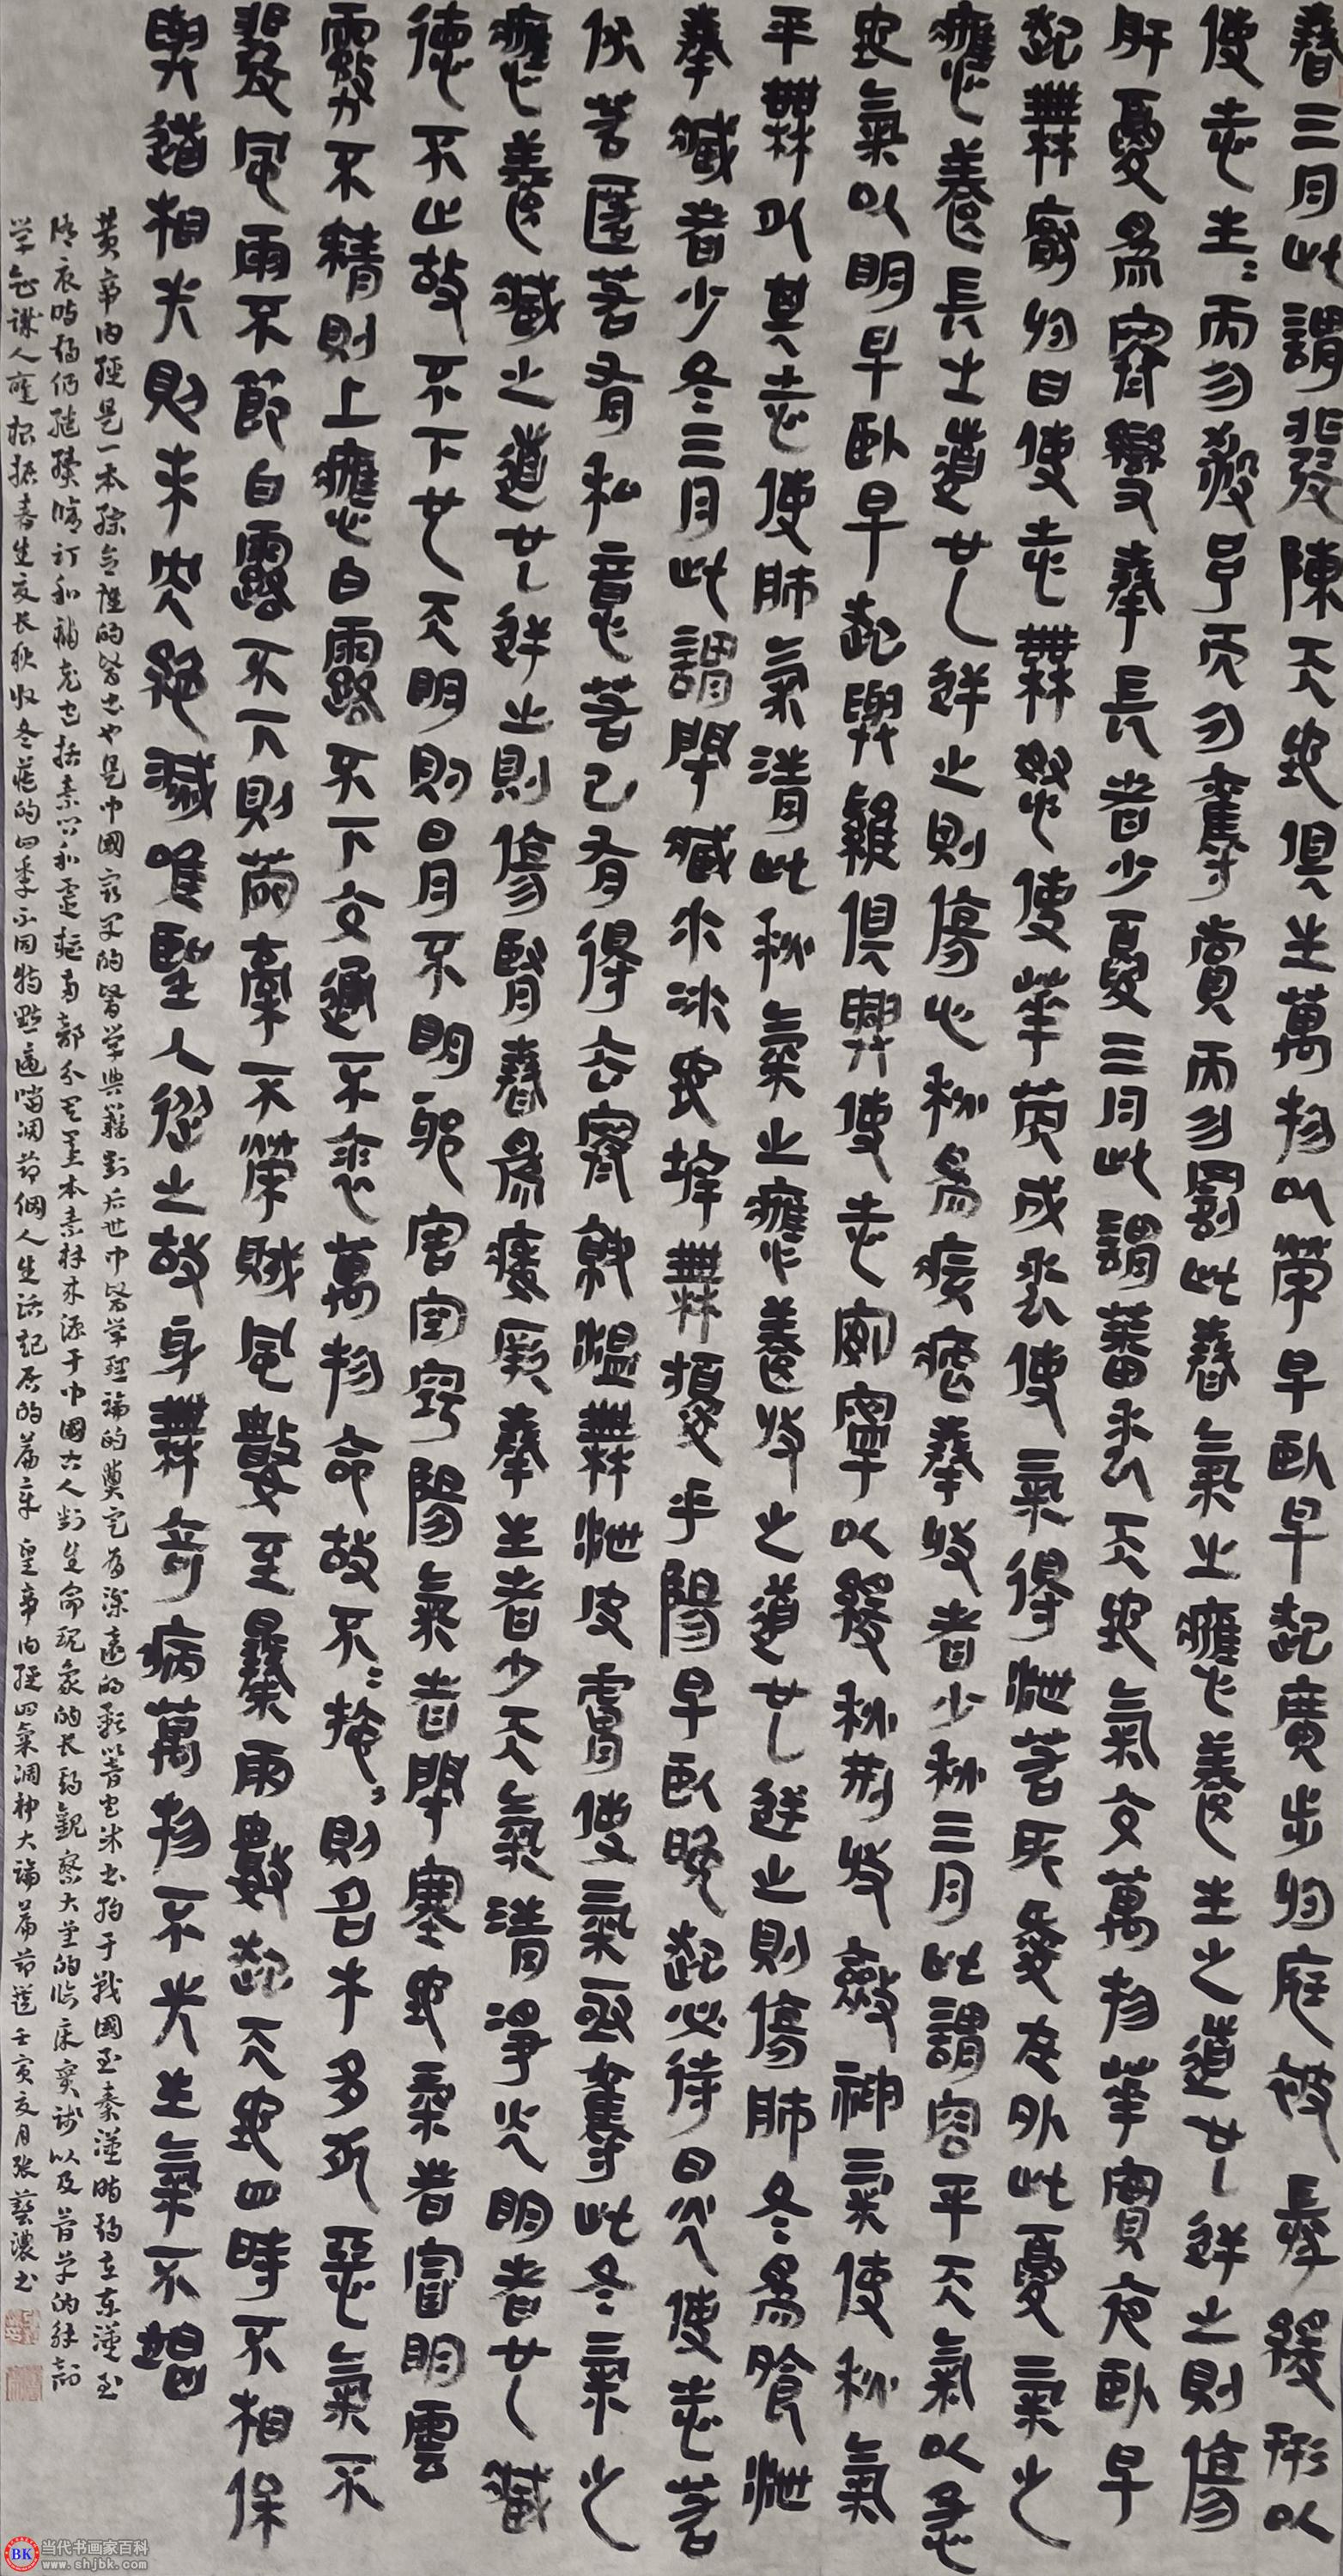 春三月此謂發陳天地俱生萬物以榮早臥早起廣步於庭被髮緩形以
使志生=而勿殺予而勿奪賞而勿罰此春氣之應養生之道也逆之則傷
肝夏為寒變奉長者少夏三月此謂蕃秀天地氣交萬物華實夜臥早
起無厭於日使志無怒使華英成秀使氣得泄若所愛在外此夏氣之
應養長之道也逆之則傷心秋為痎瘧奉收者少秋三月此謂容平天氣以急
地氣以明早臥早起與雞俱興使志安寧以緩秋刑收斂神氣使秋氣
平無以其志使肺氣清此秋氣之應養收之道也逆之則傷肺冬為飧泄
奉藏者少冬三月此謂閉藏水冰地坼無擾乎陽早臥晚起必待日光使志若
伏若匿若有私意若已有得去寒就溫無泄皮膚使氣亟奪此冬氣之
應養藏之道也逆之則傷腎春為痿厥奉生者少天氣清淨光明者也藏
德不止故不下也天明則日月不明邪害空竅陽氣者閉塞地氣者冒明雲
霧不精則上應白露不下交通不表萬物命故不=施=則名木多死惡氣不
發風雨不節白露不下則菀槁不榮賊風數至暴雨數起天地四時不相保
與道相失則未央絕滅唯聖人從之故身無奇病萬物不失生氣不竭
黃帝內經是一本綜合性的醫書也是中國最早的醫学典籍對后世中醫学理論的奠定有深遠的影響它成書約于戰國至秦漢時期在東漢至
隋唐時期仍繼續修訂和補充它括素問和靈樞兩部分其基本素材来源于中國古人對生命現象的长期觀察大量的臨床實踐以及簡單的解剖
学知識人應根据春生夏长秋收冬藏的四季不同特點適當调节個人生活記居的篇章 皇帝内經四氣调神大論篇節選壬寅夏月張藝濃书
BK 当代书画家百科
www.shjbk.com